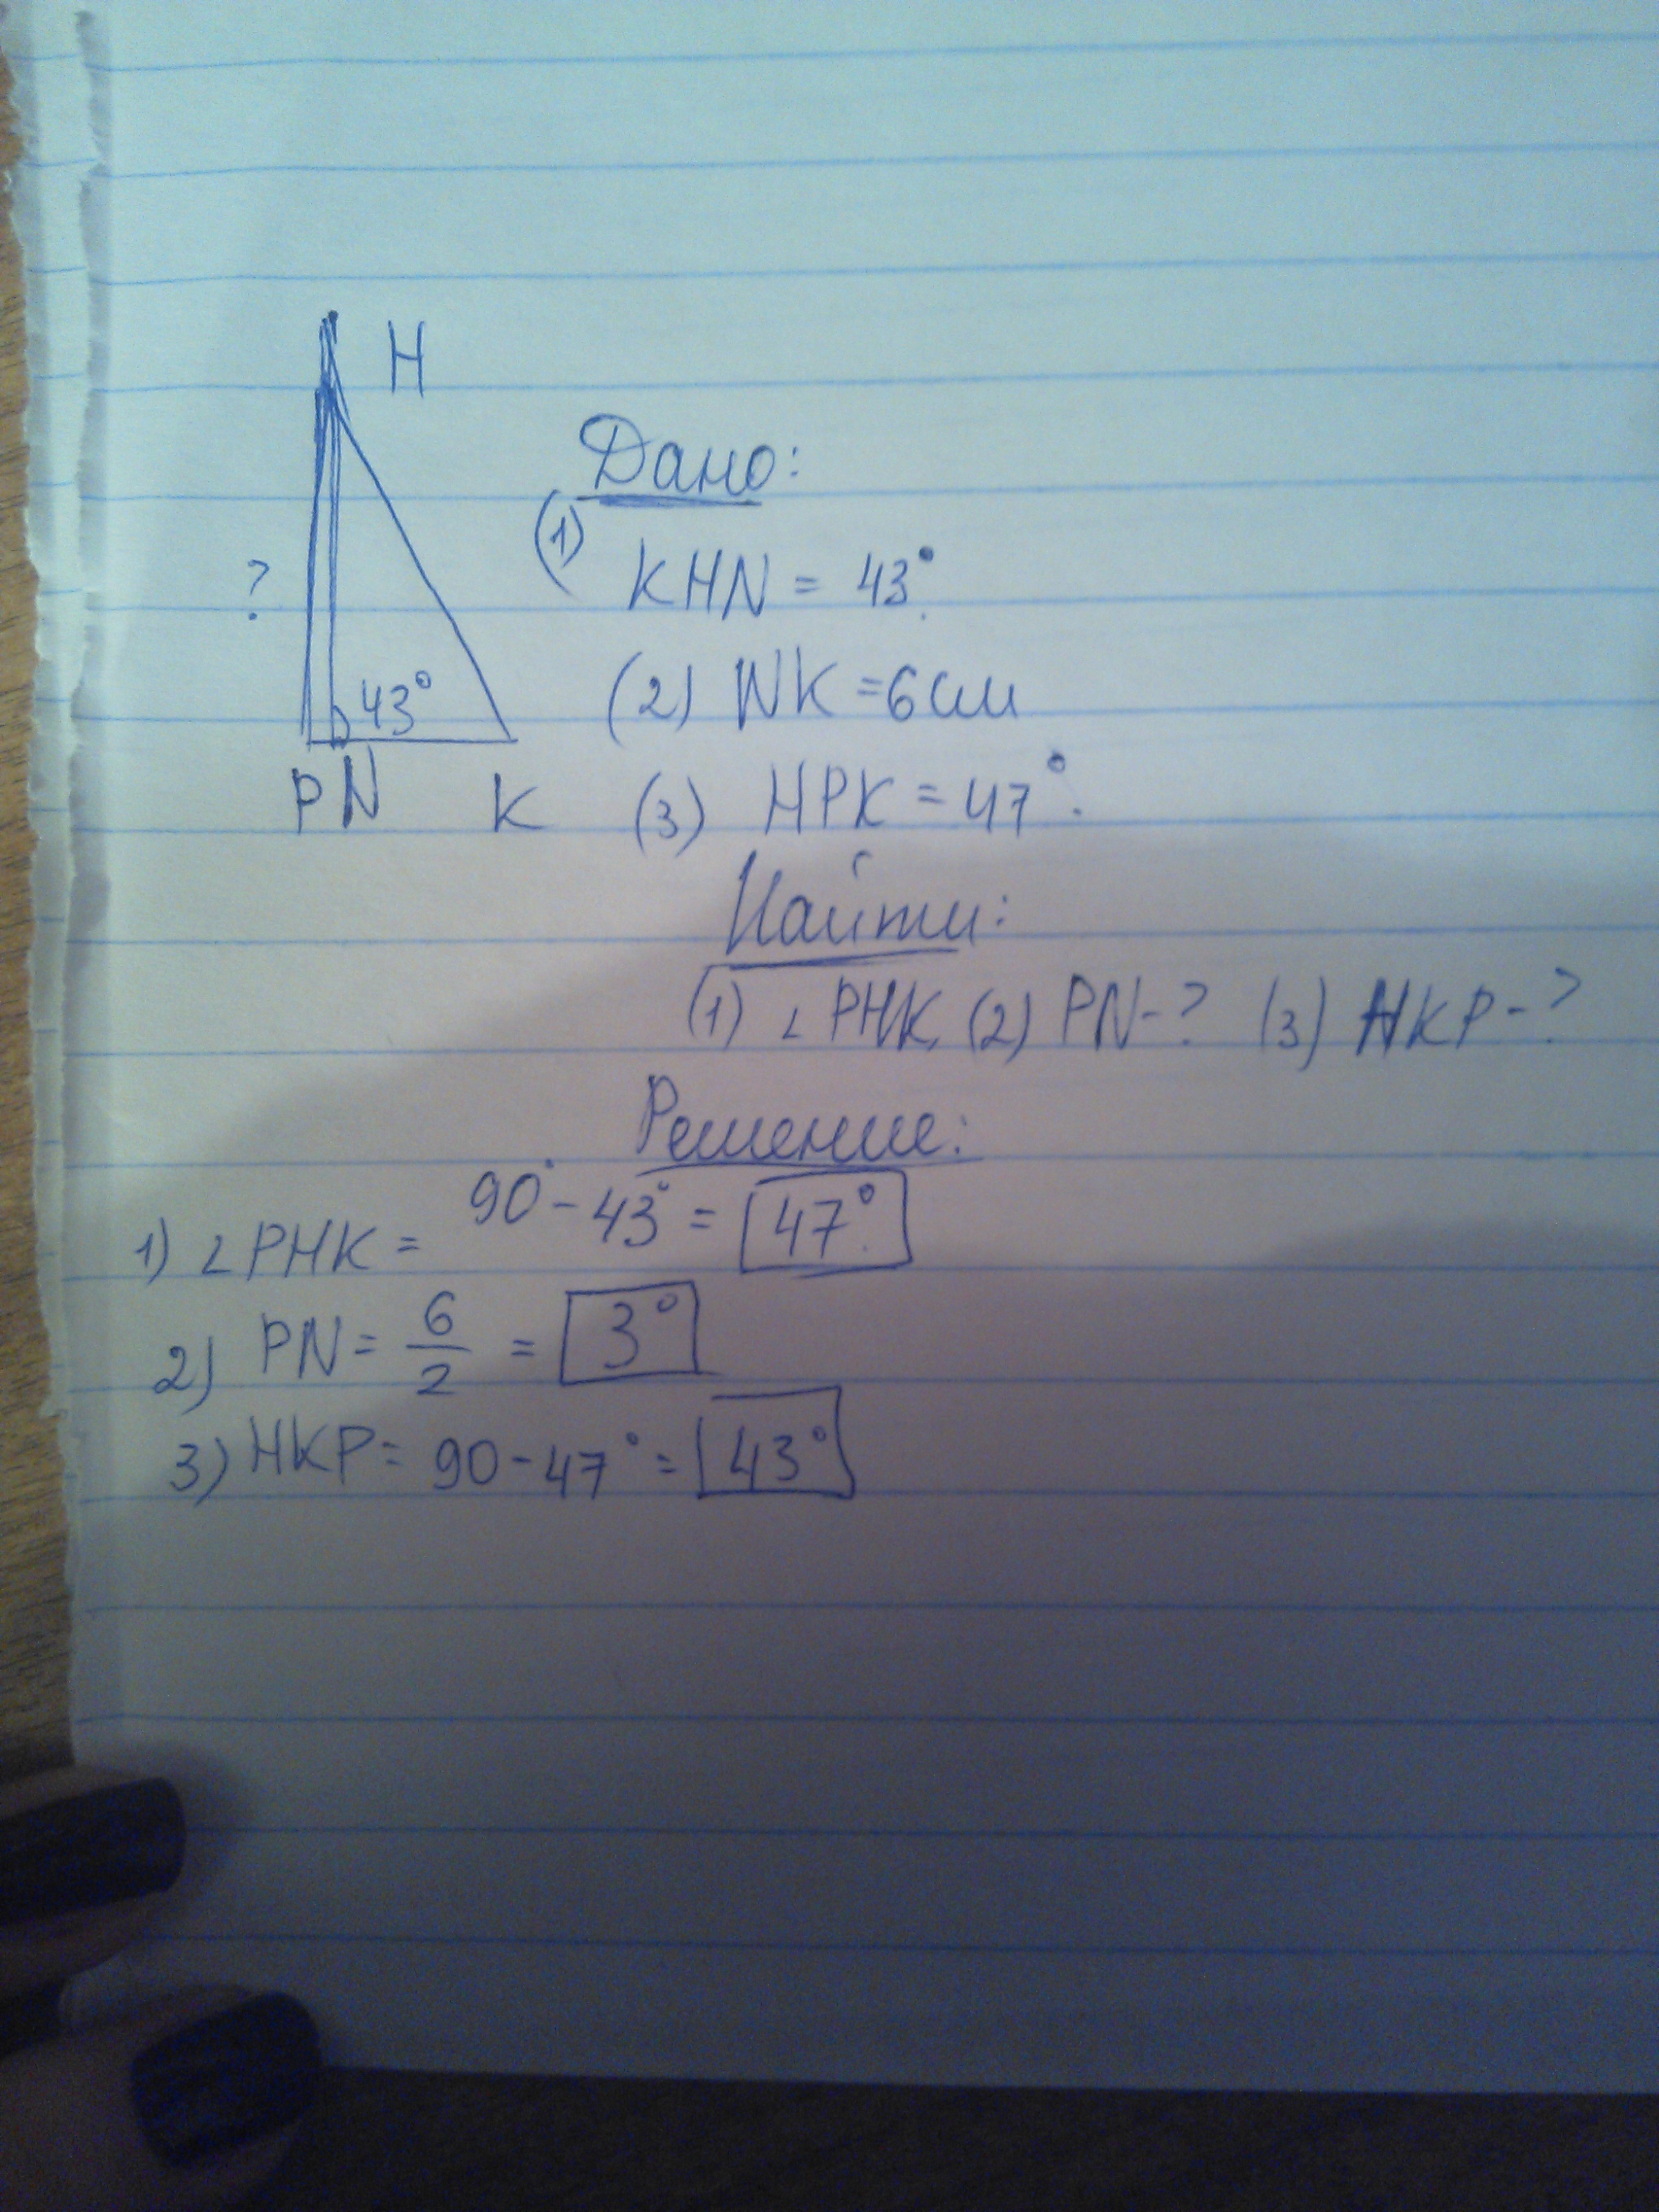 H
Дано:
(1) KHN = 43°.
? 43° (2) NK = 6см
P N K (3) HPK = 47°.
Найти:
(1) ∠PHK, (2) PN-? (3) HKP-?
Решение:
1) ∠PHK = 90°-43° = 47°.
2) PN = 6/2 = 3°
3) HKP = 90-47° = 43°